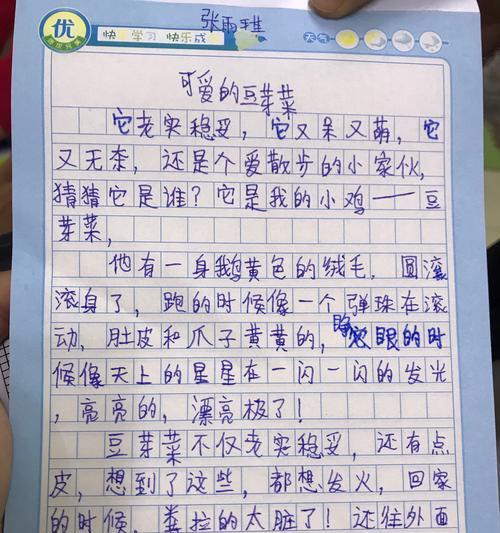 张雨
优
快 学习 快乐成
天气
可爱的豆芽菜
它老实稳妥，它又呆又萌，它
又无奈，还是个爱散步的小家伙，
猜猜它是谁？它是我的小鸡——豆
芽菜，
他有一身鹅黄色的绒毛，圆滚
滚身了，跑的时候像一个弹珠在滚
动，肚皮和爪子黄黄的，眼的时
候像天上的星星在一闪一闪的发光
，亮亮的，漂亮极了！
豆芽菜不仅老实稳妥，还有点
皮，想到了这些，都想发火，回家
的时候，粪拉的太脏了！还往外面